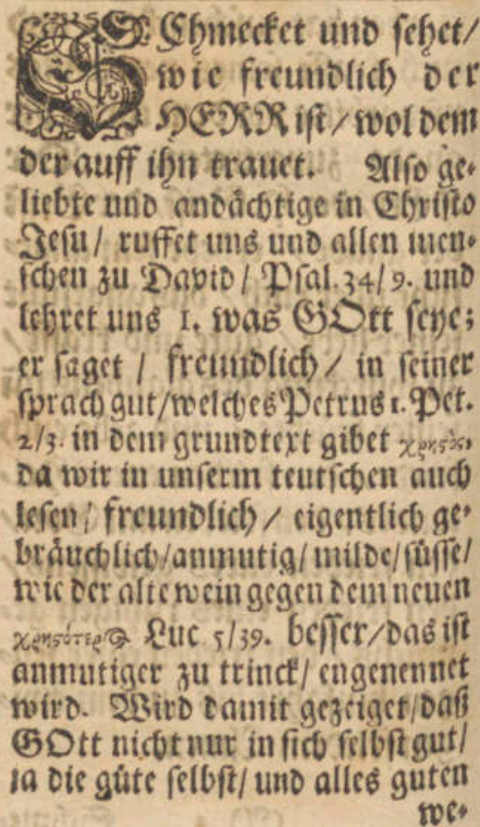 SChmecket und sehet/
wie freundlich der
HERR ist/ wol dem
der auff ihn trauet. Also ge-
liebte und andächtige in Christo
Jesu/ ruffet uns und allen men-
schen zu David/ Psal. 34/9. und
lehret uns 1. was GOtt seye;
er saget / freundlich/ in seiner
sprach gut/welches Petrus 1. Pet.
2/3. in dem grundtext gibet χρηςὸς,
da wir in unserm teutschen auch
lesen/ freundlich/ eigentlich ge-
bräuchlich/anmutig/milde/süsse/
wie der alte wein gegen dem neuen
χρηςότερ Luc 5/39. besser/das ist
anmutiger zu trinck/ engenennet
wird. Wird damit gezeiget/daß
GOtt nicht nur in sich selbst gut/
ja die güte selbst/ und alles guten
we-